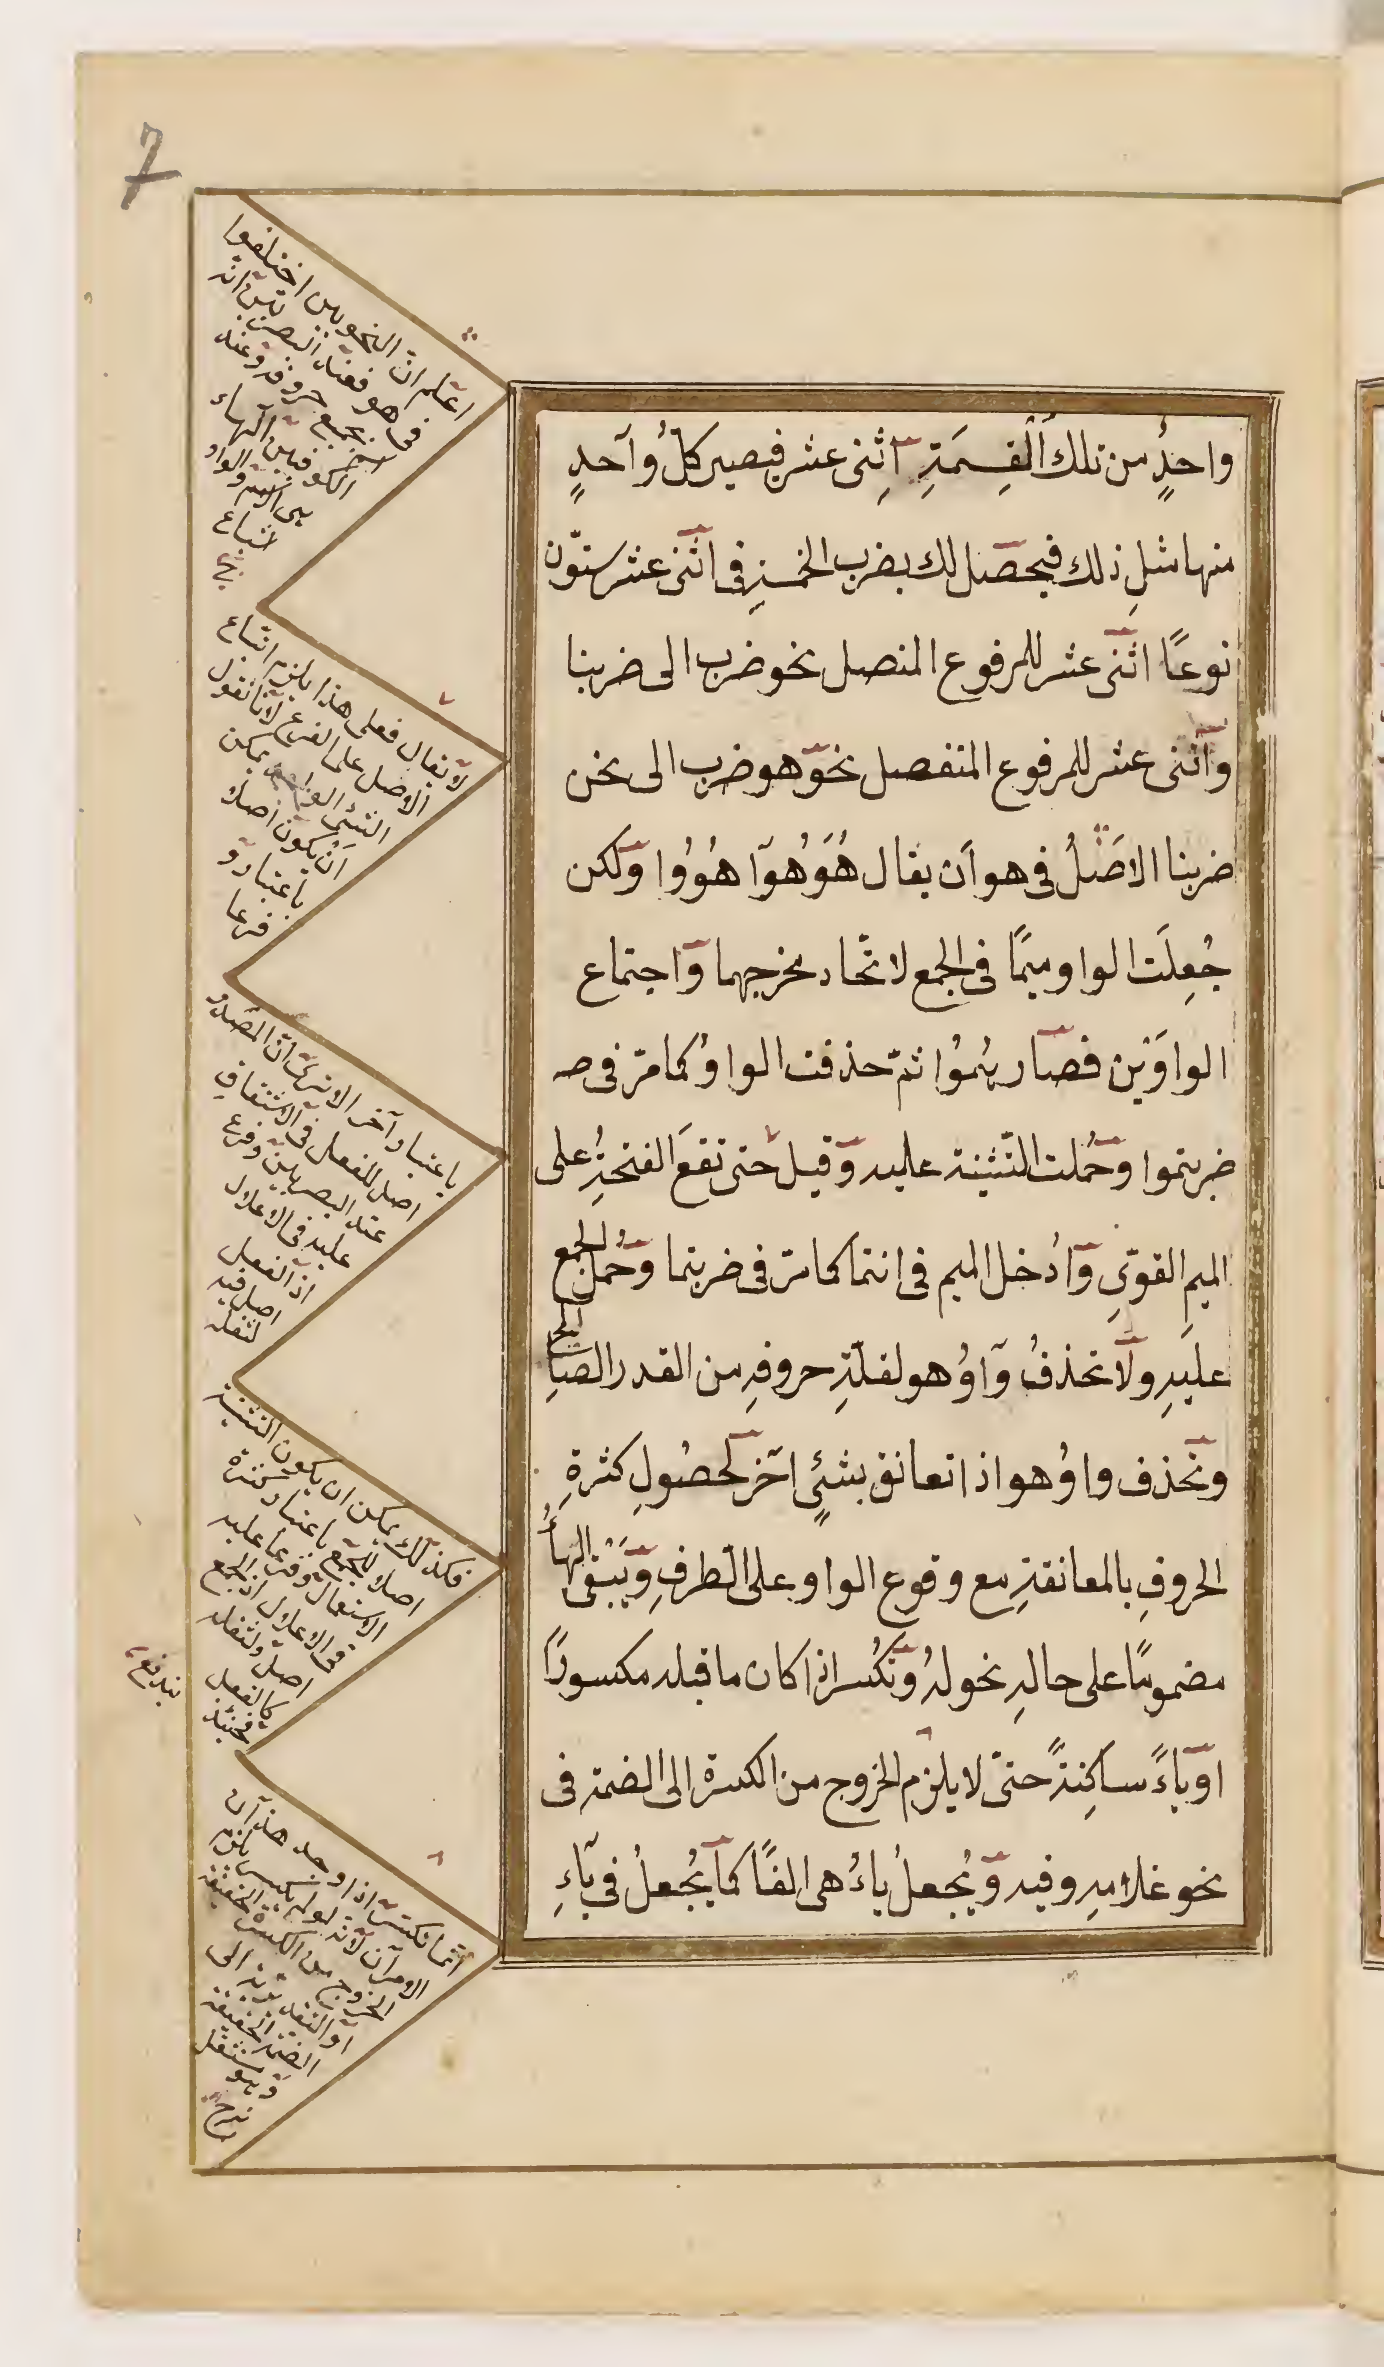 7
واحدٍ من تلك القِسمَةِ اثِنى عشر فيصير كلُّ واحدٍ
منها مثلِ ذلك فيحصل لك بضرب الخمسةِ فى اثنى عشر ستّون
نوعًا اثنى عشر للمرفوع المتصل نحو ضرب الى ضربنا
واثنى عشر للمرفوع المنفصل نحو هو ضرب الى نحن
ضربنا الاصَلُ فى هو اَن يقال هُوَ هُوَا هُوُوا ولكن
جُعِلَت الواو ميمًا فى الجمع لاتّحاد مخرجهما واجتماع
الواوَيْن فصار هُمُوا ثمّ حذفت الواوُ كما مرّ فى
ضربتموا وحُملت التّثنية عليه وقيل حتى تقعَ الفتحةُ على
الميمِ القوّىِ واُدخل الميم فى انتما كما مرّ فى ضربتما وحُمل الجمع
عليهِ ولا تحذفُ واوُ هو لقلّةِ حروفهِ من القدر الصالح
وتحذف واوُ هو اذا تعانق بشئٍ اخر لحصُولِ كثرةِ
الحروفِ بالمعانقةِ مع وقوع الواو على الطرفِ ويَبْقى الهاءُ
مضمومًا على حالهِ نحو لهُ وتُكْسر اذا كان ما قبله مكسورًا
او ياءً ساكِنةً حتىّ لا يلزم الخروج من الكسرة الى الضمة فى
نحو غلامهِ وفيه ويُجعلُ ياءُ هى الفًا كما يُجعلُ فى ياءِ
اعلم انّ النحويين اختلفوا
فى هو فعند البصريين انّه
بجميع حروفه وعند
الكوفيين الهاء
هى الاسم والواو
اشباع
لا يقال فعلى هذا يلزم اتباع
الاصل على الفرع لانّا نقول
الشئ الواحد يمكن
انْ يكون اصلا
باعتبار و
فرعا
باعتبار آخر الا ترى انّ المصدر
اصل للفعل فى الاشتقاق
عند البصريين وفرع
عليه فى الاعلال
اذ الفعل
اصل فيه
لثقله
فكذلك يمكن ان يكون التثنية
اصلا للجمع باعتبار كثرة
الاستعمال وفرعا عليه
فى الاعلال اذ الجمع
اصل ولثقله
كالفعل
فحينئذ
يندفع
انّما تكسر اذا وجد هذان
الامران لانّه لو لم يكسر يلزم
الخروج من الكسرة الحقيقة
او التقديرية الى
الضمّة الحقيقة
وهو مستثقل
شرح